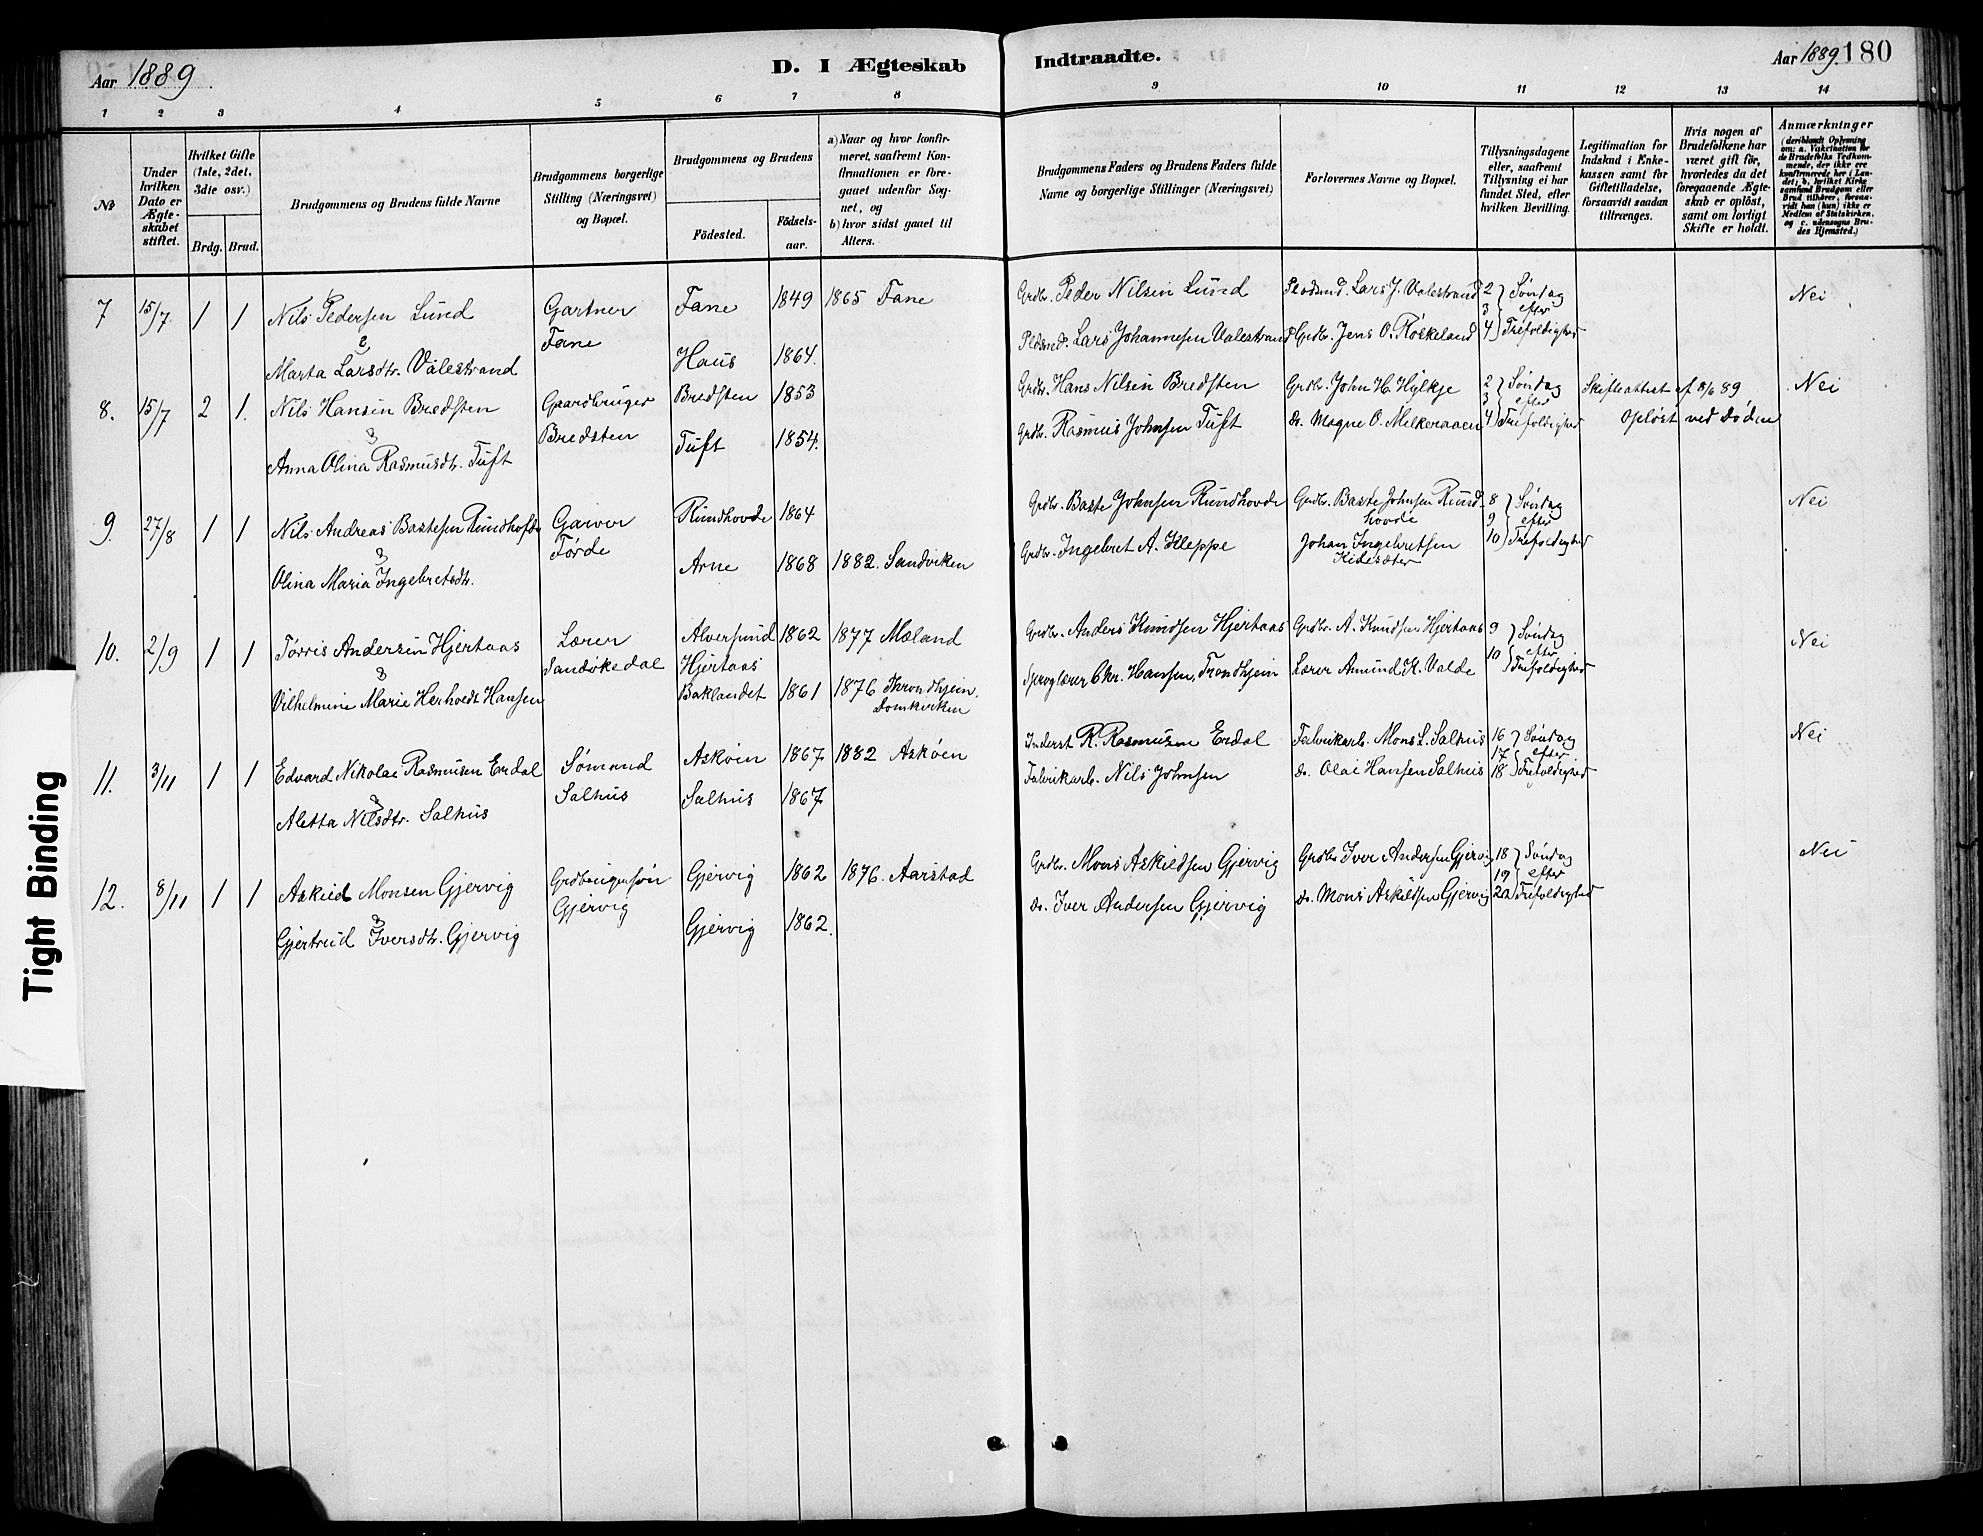 Aar 1889.
D. I Ægteskab
Indtraadte.
Aar 1889.
180
1 2 3 4 5 6 7 8 9 10 11 12 13 14
№
Under hvilken Dato er Ægteskabet stiftet.
Hvilket Gifte (1ste, 2det, 3die osv.)
Brdg. Brud.
Brudgommens og Brudens fulde Navne
Brudgommens borgerlige Stilling (Næringsvei) og Bopæl.
Brudgommens og Brudens
Födested.
Födselsaar.
a) Naar og hvor konfirmeret, saafremt Konfirmationen er foregaaet udenfor Sognet, og
b) hvor sidst gaaet til Alters.
Brudgommens Faders og Brudens Faders fulde Navne og borgerlige Stillinger (Næringsvei)
Forlovernes Navne og Bopæl.
Tillysningsdagene eller, saafremt Tillysning ei har fundet Sted, efter hvilken Bevilling.
Legitimation for Indskud i Enkekassen samt for Giftetilladelse, forsaavidt saadan tiltrænges.
Hvis nogen af Brudefolkene har været gift før, hvorledes da det foregaaende Ægteskab er oplöst, samt om lovligt Skifte er holdt.
Anmærkninger
(deriblandt Oplysning om: a. Vakcination for de Brudefolks Vedkommende, der ikke ere konfirmerede her i Landet; b. hvilket Kirkesamfund Brudgom eller Brud tilhører, forsaavidt han (hun) ikke er Medlem af Statskirken, og c. udensogns Brudes Hjemsted.)
7 15/7 1 1 Nils Pedersen Lund Gartner Fane 1849 1865 Fane Grdbr. Peder Nilsen Lund Pladsmd. Lars J. Valestrand 2 Søndag Nei
& Fane 3 efter
Marta Larsdtr. Valestrand Haus 1864. Pldsmd. Lars Johannesen Valestrand Grdbr. Jens O. Røskeland 4 Trefoldighed
8. 15/7 2 1. Nils Hansen Bredsten Gaardbruger Bredsten 1853 Grdbr. Hans Nilsen Bredsten Grdbr. John H. Hylkje 2 Søndag Skifteattest af 8/6 89 Nei
& Bredsten 3 efter
Anna Olina Rasmusdtr. Tuft Tuft 1854. Grdbr. Rasmus Johnsen Tuft Do. Magne O. Melkeraaen 4 Trefoldighed Opløst ved Døden
9. 27/8 1 1 Nils Andreas Bastesen Rundhofde Garver Rundhovde 1864 Grdbr. Baste Johnsen Rundhovde Grdbr. Baste Johnsen Rundhovde 8 Søndag Nei
& Førde 9 efter
Olina Maria Ingebretsdtr. Arne 1868 1882. Sandviken Grdbr. Ingebret A. Kleppe Johan Ingebretsen 10 Trefoldighed
10. 2/9 1 1 Tørris Andersen Hjertaas Lærer Alversund 1862 1877 Mæland Grdbr. Anders Knudsen Hjertaas Grdbr. A. Knudsen Hjertaas 9 Søndag Nei
& Sandøkedal Hjertaas efter
Vilhelmine Marie Hansen Baklandet 1861 1876 Throndhjem, Domkirken Sproglærer Chr. Hansen, Trondhjem Lærer Amund K. Valde 10 Trefoldighed
11. 3/11 1 1 Edvard Nikolae Rasmusen Erdal Sømand Askøen 1867 1882 Askøen Inderst R. Rasmusen Erdal Fabrikarb. Mons L. Salhus 16 Søndag Nei
& Salhus 17 efter
Aletta Nilsdtr. Salhus Salhus 1867 Fabrikarb. Nils Johnsen Do. Olai Hansen Salhus 18 Trefoldighed
12. 8/11 1 1 Askild Monsen Gjervig Grdbrugersøn Gjervig 1862 1876. Aarstad Grdbr. Mons Askildsen Gjervig Grdbr. Iver Andersen Gjervig 18 Søndag Nei
& Gjervig 19 efter
Gjertrud Iversdtr. Gjervig Gjervig 1862. Do. Iver Andersen Gjervig Do. Mons Askildsen Gjervig 20 Trefoldighed
Tight Binding